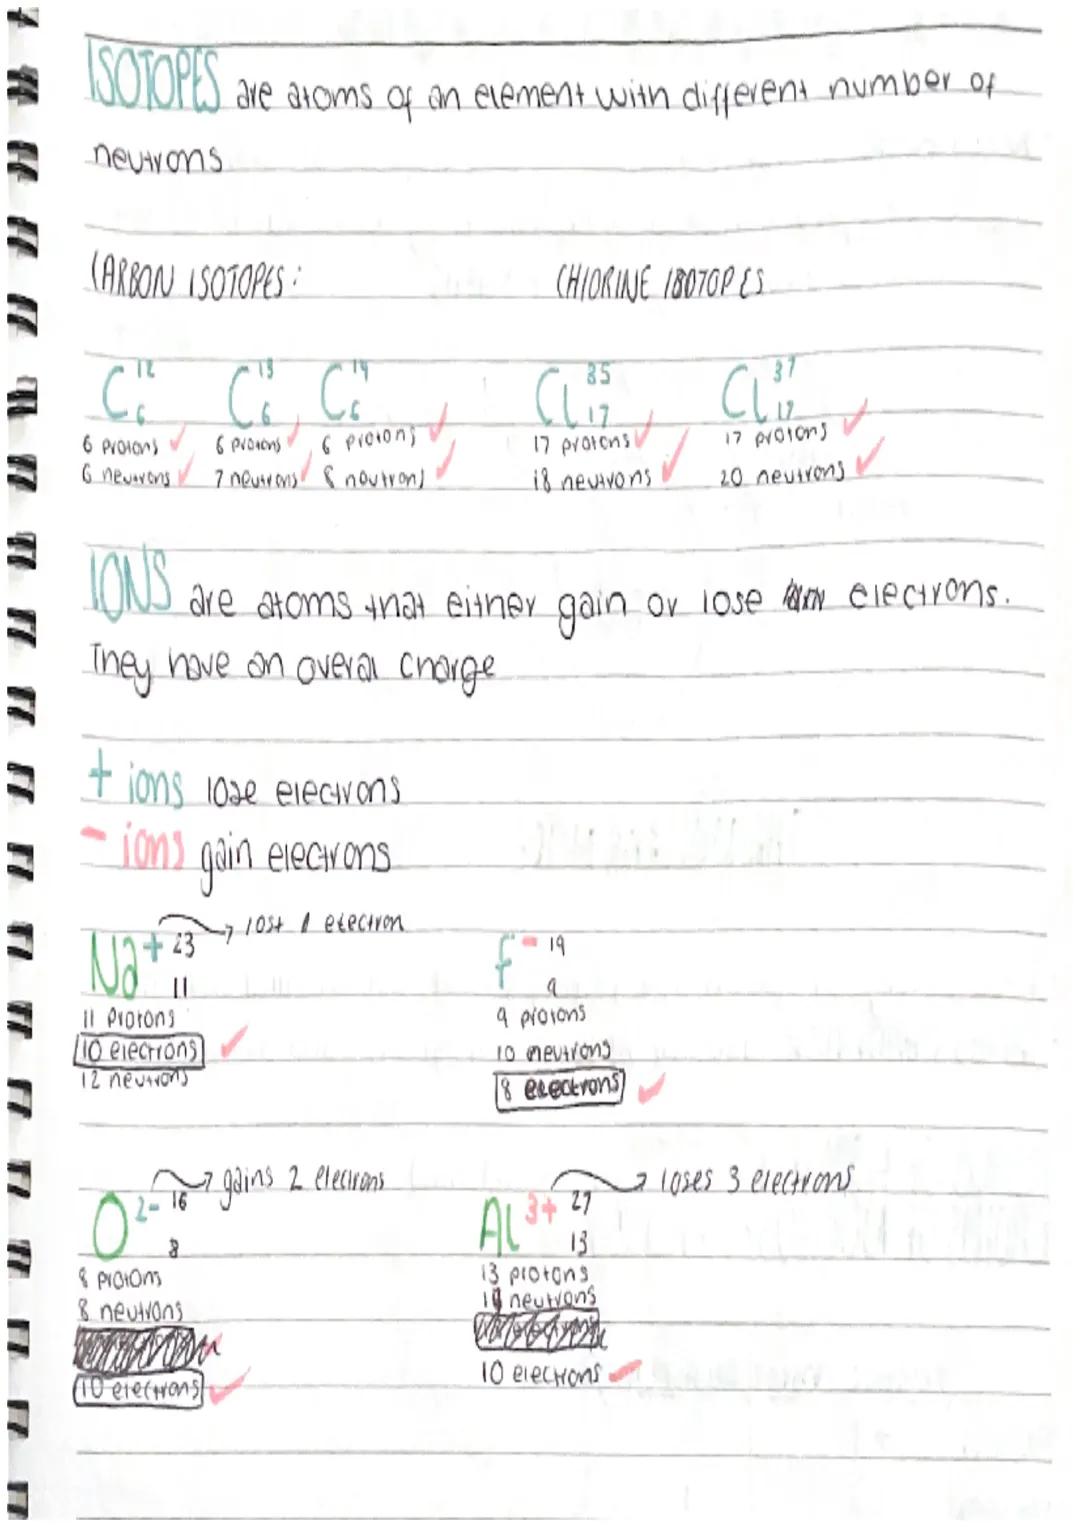 ISOTOPES are atoms of an element with different number of
neutrons
CARBON ISOTOPES:
C 12 6
6 protons
6 neutrons
C 13 6
6 protons
7 neutrons
C 14 6
6 protons
8 neutrons
CHLORINE ISOTOPES
Cl 35 17
17 protons
18 neutrons
Cl 37 17
17 protons
20 neutrons
IONS are atoms that either gain or lose electrons.
They have an overal charge
+ ions lose electrons
- ions gain electrons
Na + 23 11 → lost 1 electron
11 protons
10 electrons
12 neutrons
F - 19 9
9 protons
10 neutrons
8 electrons
O 2- 16 8 → gains 2 electrons
8 protons
8 neutrons
10 electrons
Al 3+ 27 13 → loses 3 electrons
13 protons
neutrons
10 electrons